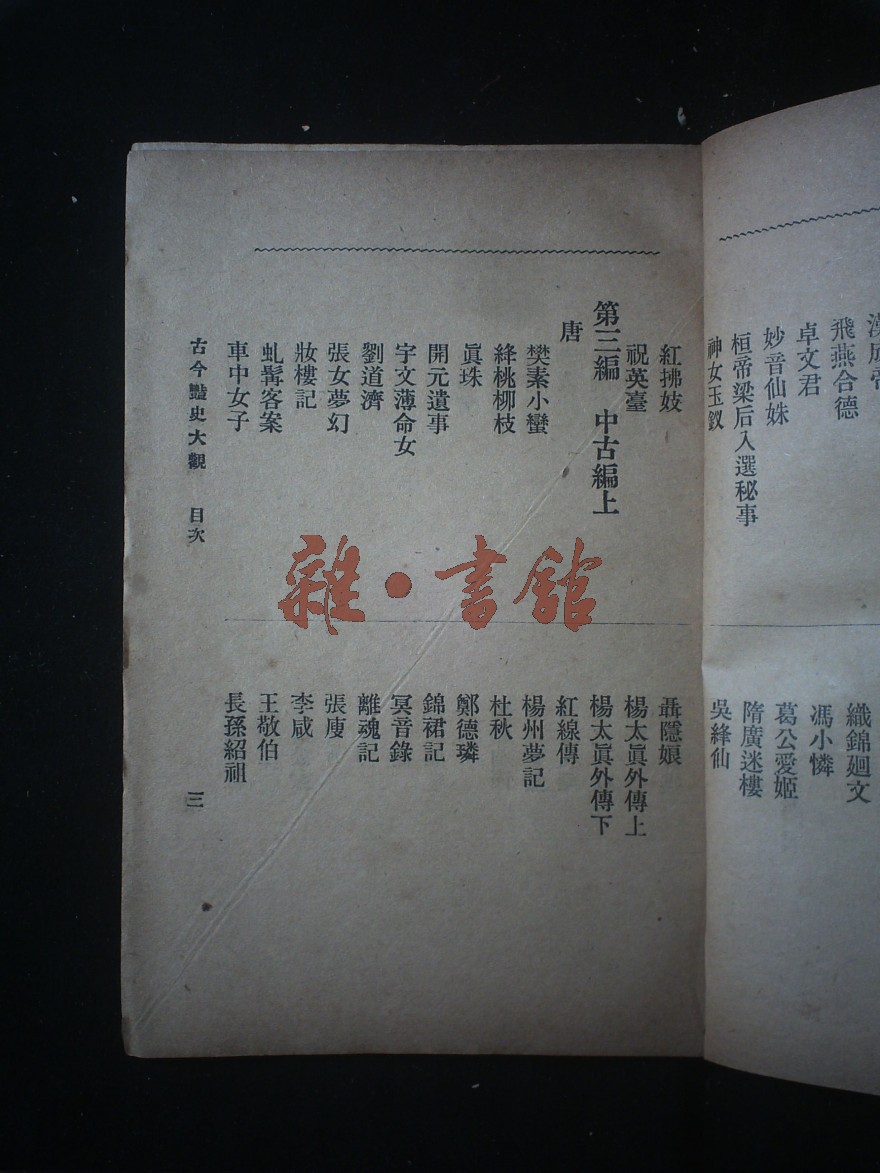 漢成帝
飛燕合德
卓文君
妙音仙姝
桓帝梁后入選秘事
神女玉釵
織錦廻文
馮小憐
葛公愛姬
隋廣迷樓
吳絳仙
紅拂妓
祝英臺
第三編　中古編上
唐
樊素小蠻
絳桃柳枝
眞珠
開元遺事
宇文薄命女
劉道濟
張女夢幻
妝樓記
虬髯客案
車中女子
聶隱娘
楊太眞外傳上
楊太眞外傳下
紅線傳
楊州夢記
杜秋
鄭德璘
錦裙記
冥音錄
離魂記
張庾
李咸
王敬伯
長孫紹祖
古今豔史大觀　目次
三
雜·書館